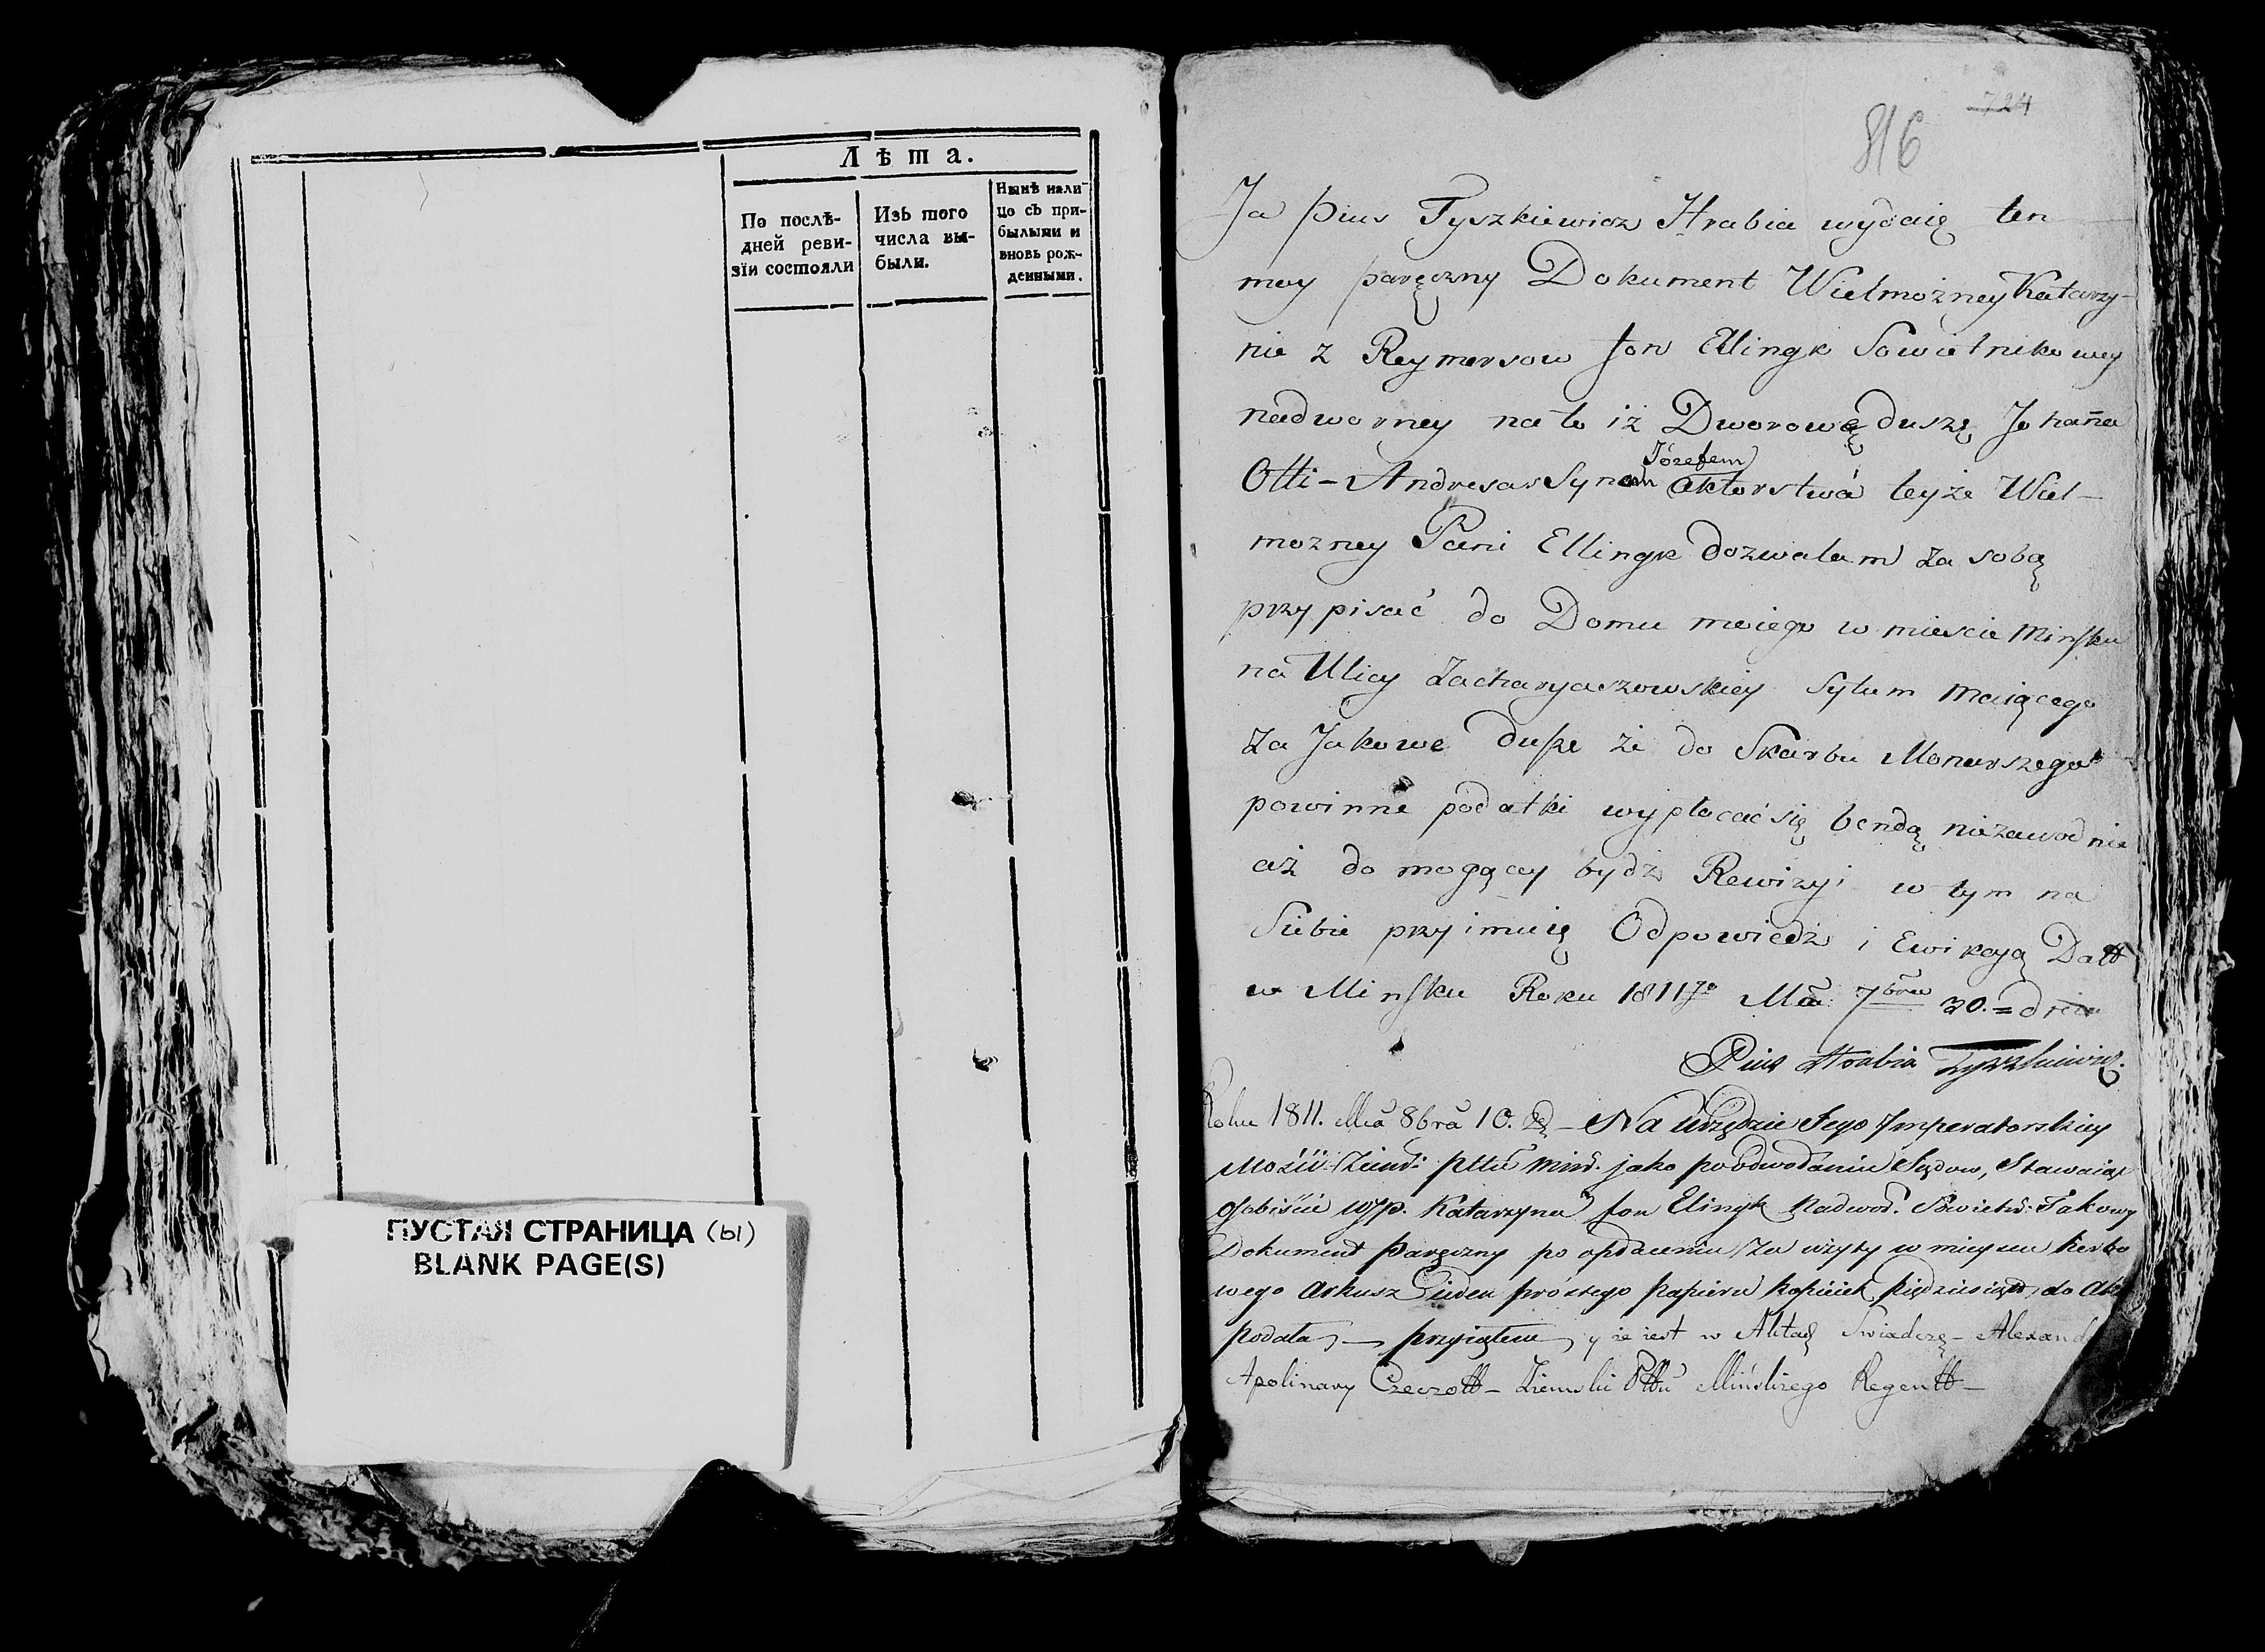 Лѣта.
По послѣ-
дней реви-
зіи состояли
Изъ того
числа вы-
были.
Нынѣ нали-
цо съ при-
былыми и
вновь рож-
денными.
ПУСТАЯ СТРАНИЦА (ы)
BLANK PAGE(S)
724
816
Ja Pius Tyszkiewicz Hrabia wydaię ten
moy paręczny Dokument Wielmożney Katarzy-
nie z Reymersow fon Ellingk Sowietnikowey
nadworney na to iż Dworową duszę Johana
Otti - Andresas Synem Józefem aktorstwá teyże Wiel-
możney Pani Ellingk dozwalam za sobą
przypisać do Domu moiego w miescie Minsku
na Ulicy Zacharyaszowskiey Sytum maiącego
Za Jakowe dusze że do Skarbu Monarszego
powinne podatki wypłocać się bendą niezawodnie
aż do mogącey bydź Rewizyi w tym na
Siebie przyimuię Odpowiedź i Ewikcyą Datt
w Minsku Roku 1811go Mca 7bra 30. = dnia
Pius Hrabia Tyszkiewicz.
Roku 1811. Mca 8bra 10. d. - Na Urzędzie Jego Imperatorskiey
Mości Ziem: pttu Miń. jako po odwołaniu Sądow, Stawaiąc
osobiście WJP. Katarzyna fon Elingk Nadwor. Sowietn. Takowy
Dokument paręczny po opłaceniu za użyty w mieyscu herbo
wego arkusz ieden prostego papieru kopieiek piędziesiąt, do Akt
podała, - przyiąłem, y że iest w Aktach Swiadczę - Alexand
Apolinary Czeczott - Ziemski Pttu Mińskiego Regentt -